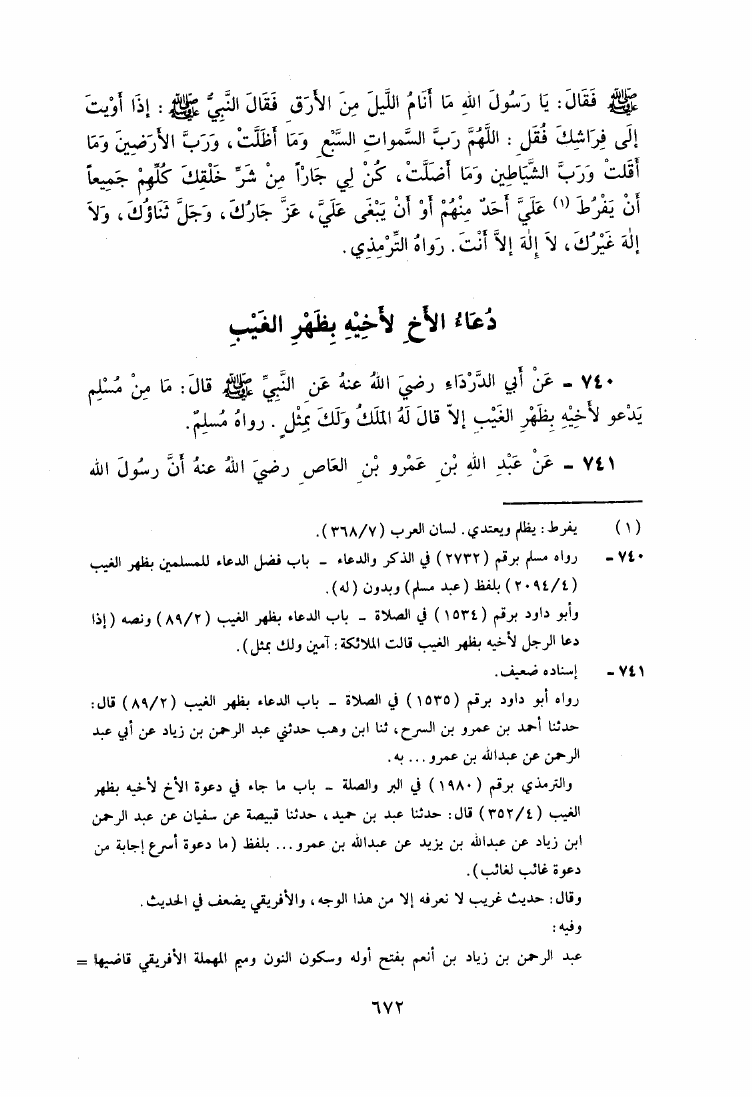 ﷺ فَقَالَ: يَا رَسُولَ اللهِ مَا أَنَامُ اللَّيلَ مِنَ الأَرَقِ فَقَالَ النَّبِيُّ ﷺ : إذَا أَوَيْتَ
إلَى فِرَاشِكَ فَقُلِ : اللَّهُمَّ رَبَّ السَّمواتِ السَّبْعِ وَمَا أَظَلَّتْ، وَرَبَّ الأَرَضِينَ وَمَا
أَقَلتْ وَرَبَّ الشَّيَاطِينِ وَمَا أَضَلَّتْ، كُنْ لِي جَاراً مِنْ شَرِّ خَلْقِكَ كُلِّهِمْ جَمِيعاً
أَنْ يَفْرُطَ (١) عَلَيَّ أَحَدٌ مِنْهُمْ أَوْ أَنْ يَبْغَى عَلَيَّ، عَزَّ جَارُكَ، وَجَلَّ ثَنَاؤُكَ، وَلاَ
إلٰهَ غَيْرُكَ، لاَ إِلٰهَ إلاَّ أَنْتَ. رَواهُ التِّرْمِذِي.
دُعَاءُ الأَخِ لأَخِيْهِ بِظَهْرِ الغَيْبِ
٧٤٠ - عَنْ أَبي الدَّرْدَاءِ رضيَ اللهُ عنهُ عَنِ النَّبيِّ ﷺ قالَ: مَا مِنْ مُسْلِمٍ
يَدْعو لأَخِيْهِ بِظَهْرِ الغَيْبِ إلاّ قالَ لَهُ المَلَكُ وَلَكَ بِمِثْلٍ . رواهُ مُسلِمٌ.
٧٤١ - عَنْ عَبْدِ اللهِ بْنِ عَمْرو بْنِ العَاصِ رضيَ اللهُ عنهُ أَنَّ رسُولَ الله
(١) يفرط: يظلم ويعتدي. لسان العرب (٣٦٨/٧).
٧٤٠ - رواه مسلم برقم (٢٧٣٢) في الذكر والدعاء - باب فضل الدعاء للمسلمين بظهر الغيب
(٢٠٩٤/٤) بلفظ (عبد مسلم) وبدون (له).
وأبو داود برقم (١٥٣٤) في الصلاة - باب الدعاء بظهر الغيب (٨٩/٢) ونصه (إذا
دعا الرجل لأخيه بظهر الغيب قالت الملائكة: آمين ولك بمثل).
٧٤١ - إسناده ضعيف.
رواه أبو داود برقم (١٥٣٥) في الصلاة - باب الدعاء بظهر الغيب (٨٩/٢) قال:
حدثنا أحمد بن عمرو بن السرح، ثنا ابن وهب حدثني عبد الرحمن بن زياد عن أبي عبد
الرحمن عن عبدالله بن عمرو... به.
والترمذي برقم (١٩٨٠) في البر والصلة - باب ما جاء في دعوة الأخ لأخيه بظهر
الغيب (٣٥٢/٤) قال: حدثنا عبد بن حميد، حدثنا قبيصة عن سفيان عن عبد الرحمن
ابن زياد عن عبدالله بن يزيد عن عبدالله بن عمرو... بلفظ (ما دعوة أسرع إجابة من
دعوة غائب لغائب).
وقال: حديث غريب لا نعرفه إلا من هذا الوجه، والأفريقي يضعف في الحديث.
وفيه:
عبد الرحمن بن زياد بن أنعم بفتح أوله وسكون النون وميم المهملة الأفريقي قاضيها =
٦٧٢